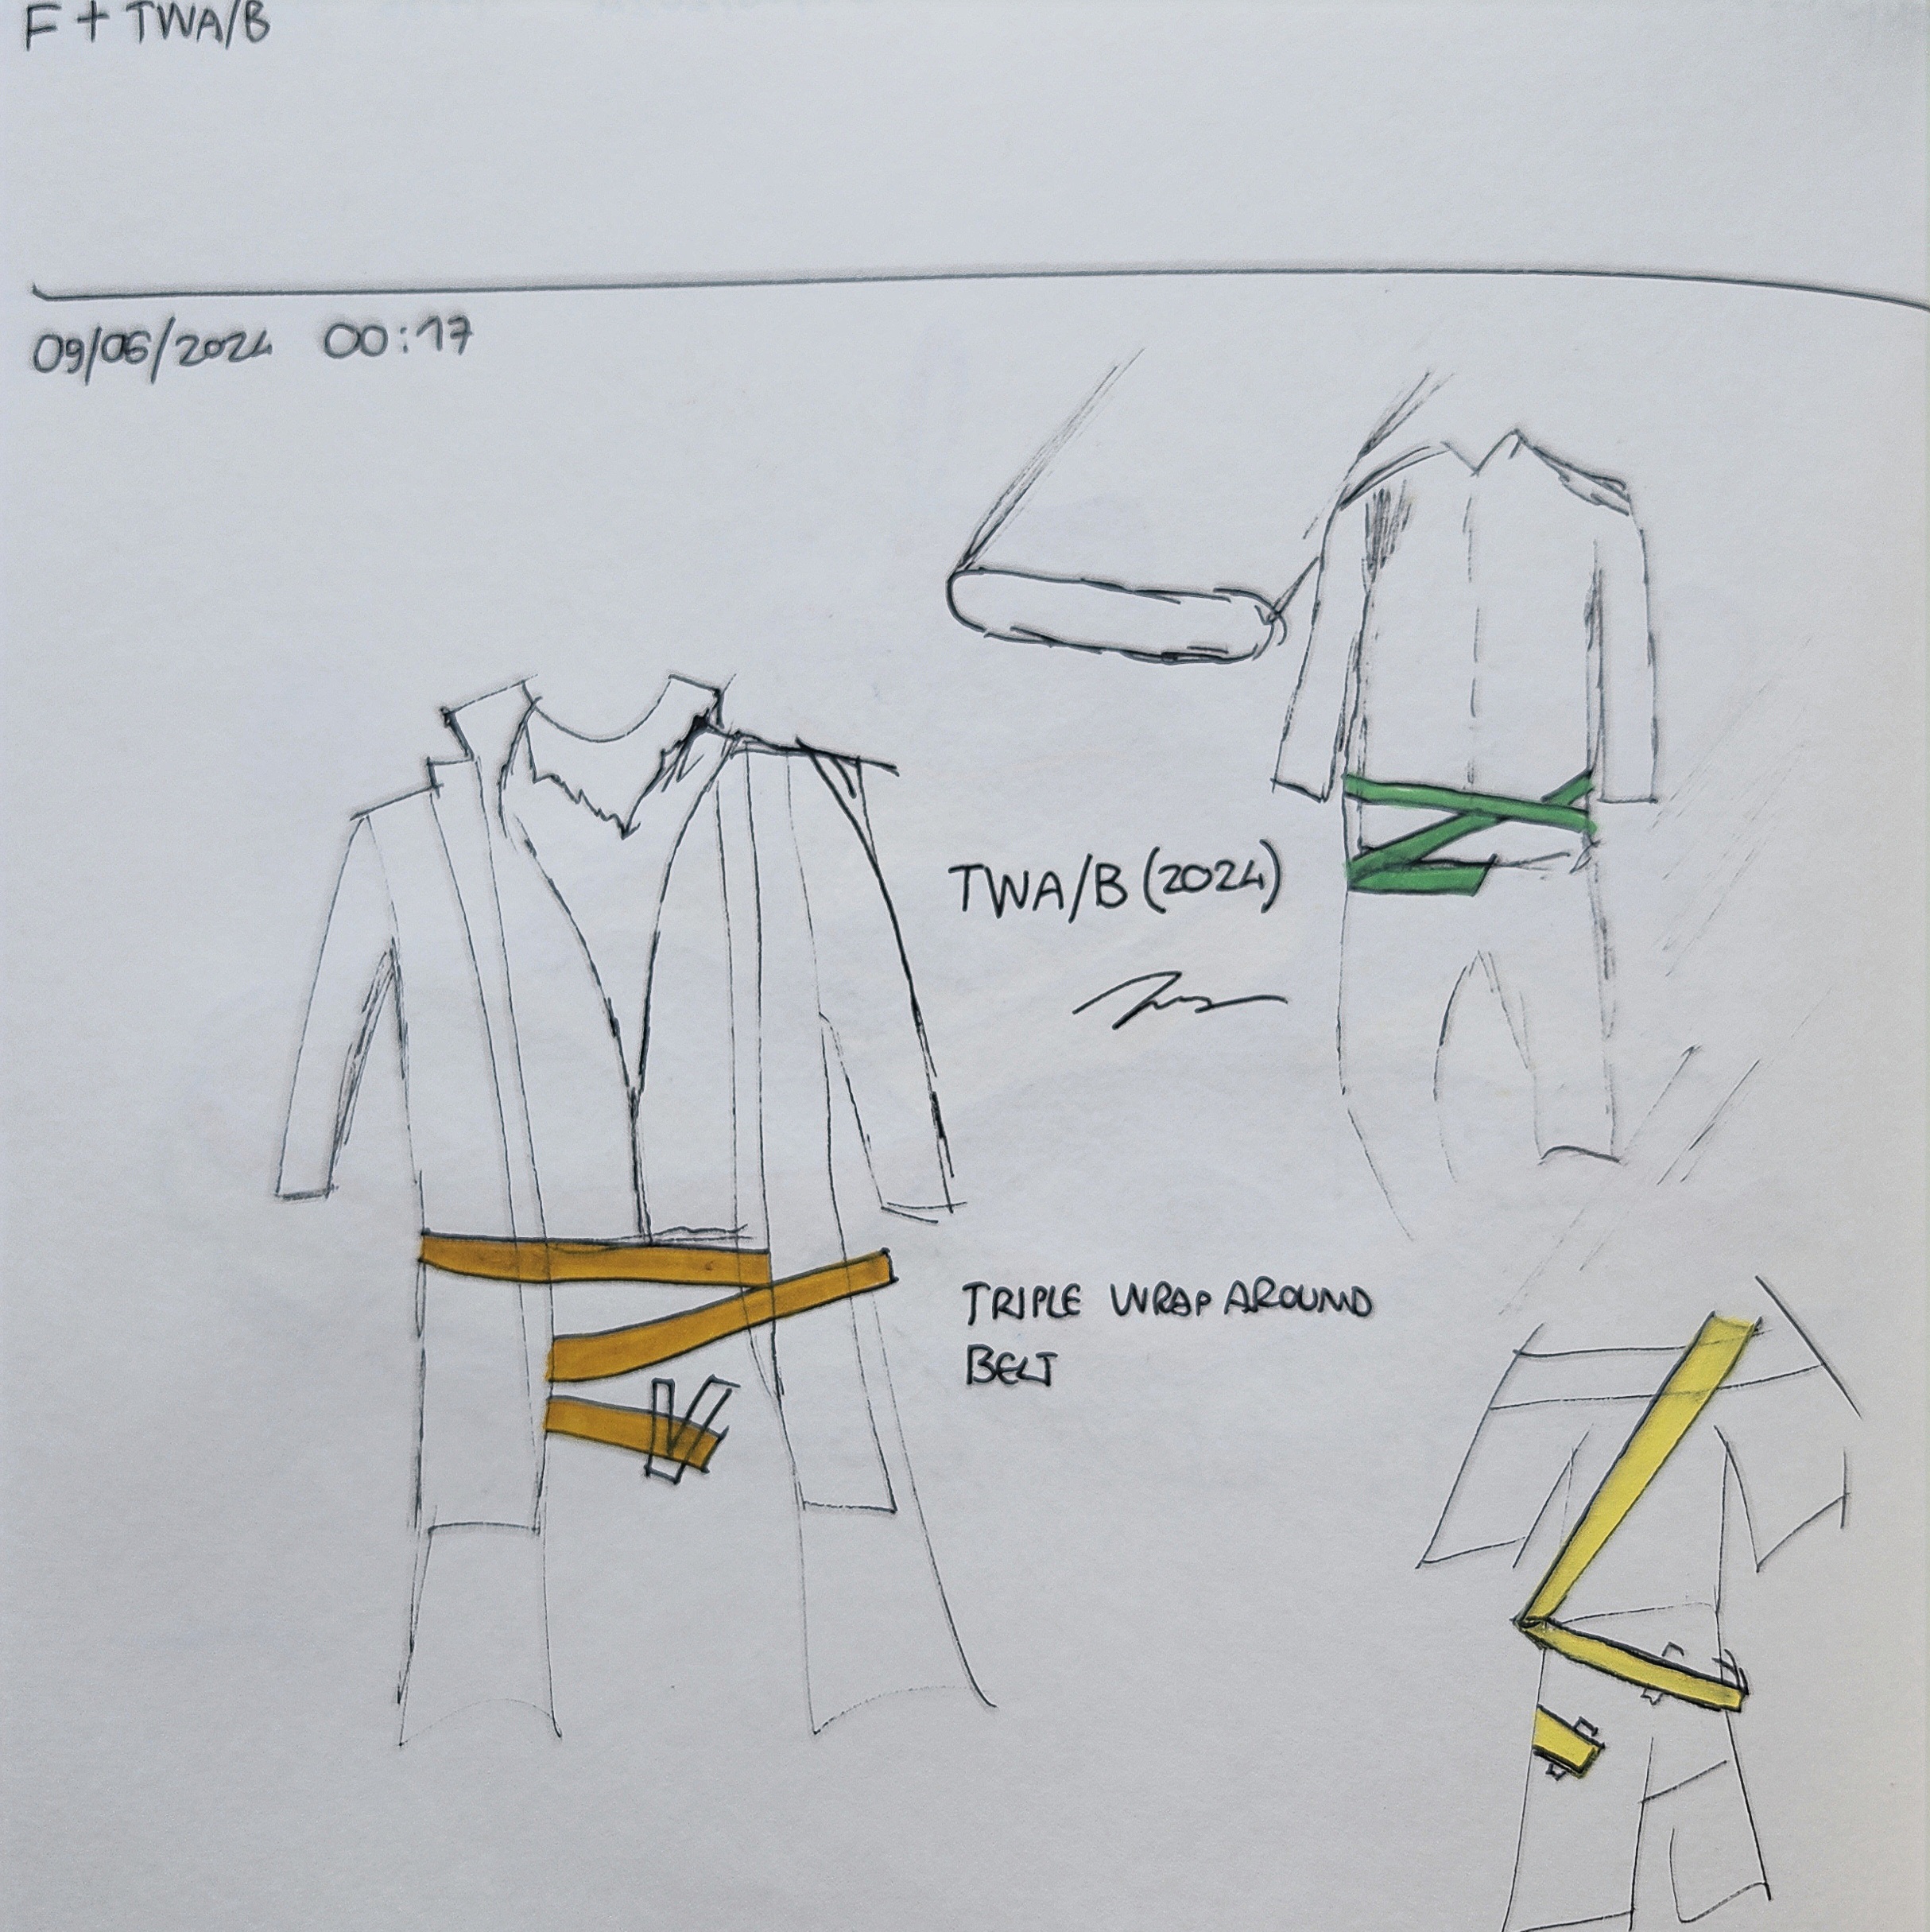 F + TWA/B
09/06/2024 00:17
TWA/B (2024)
TRIPLE WRAP AROUND
BELT